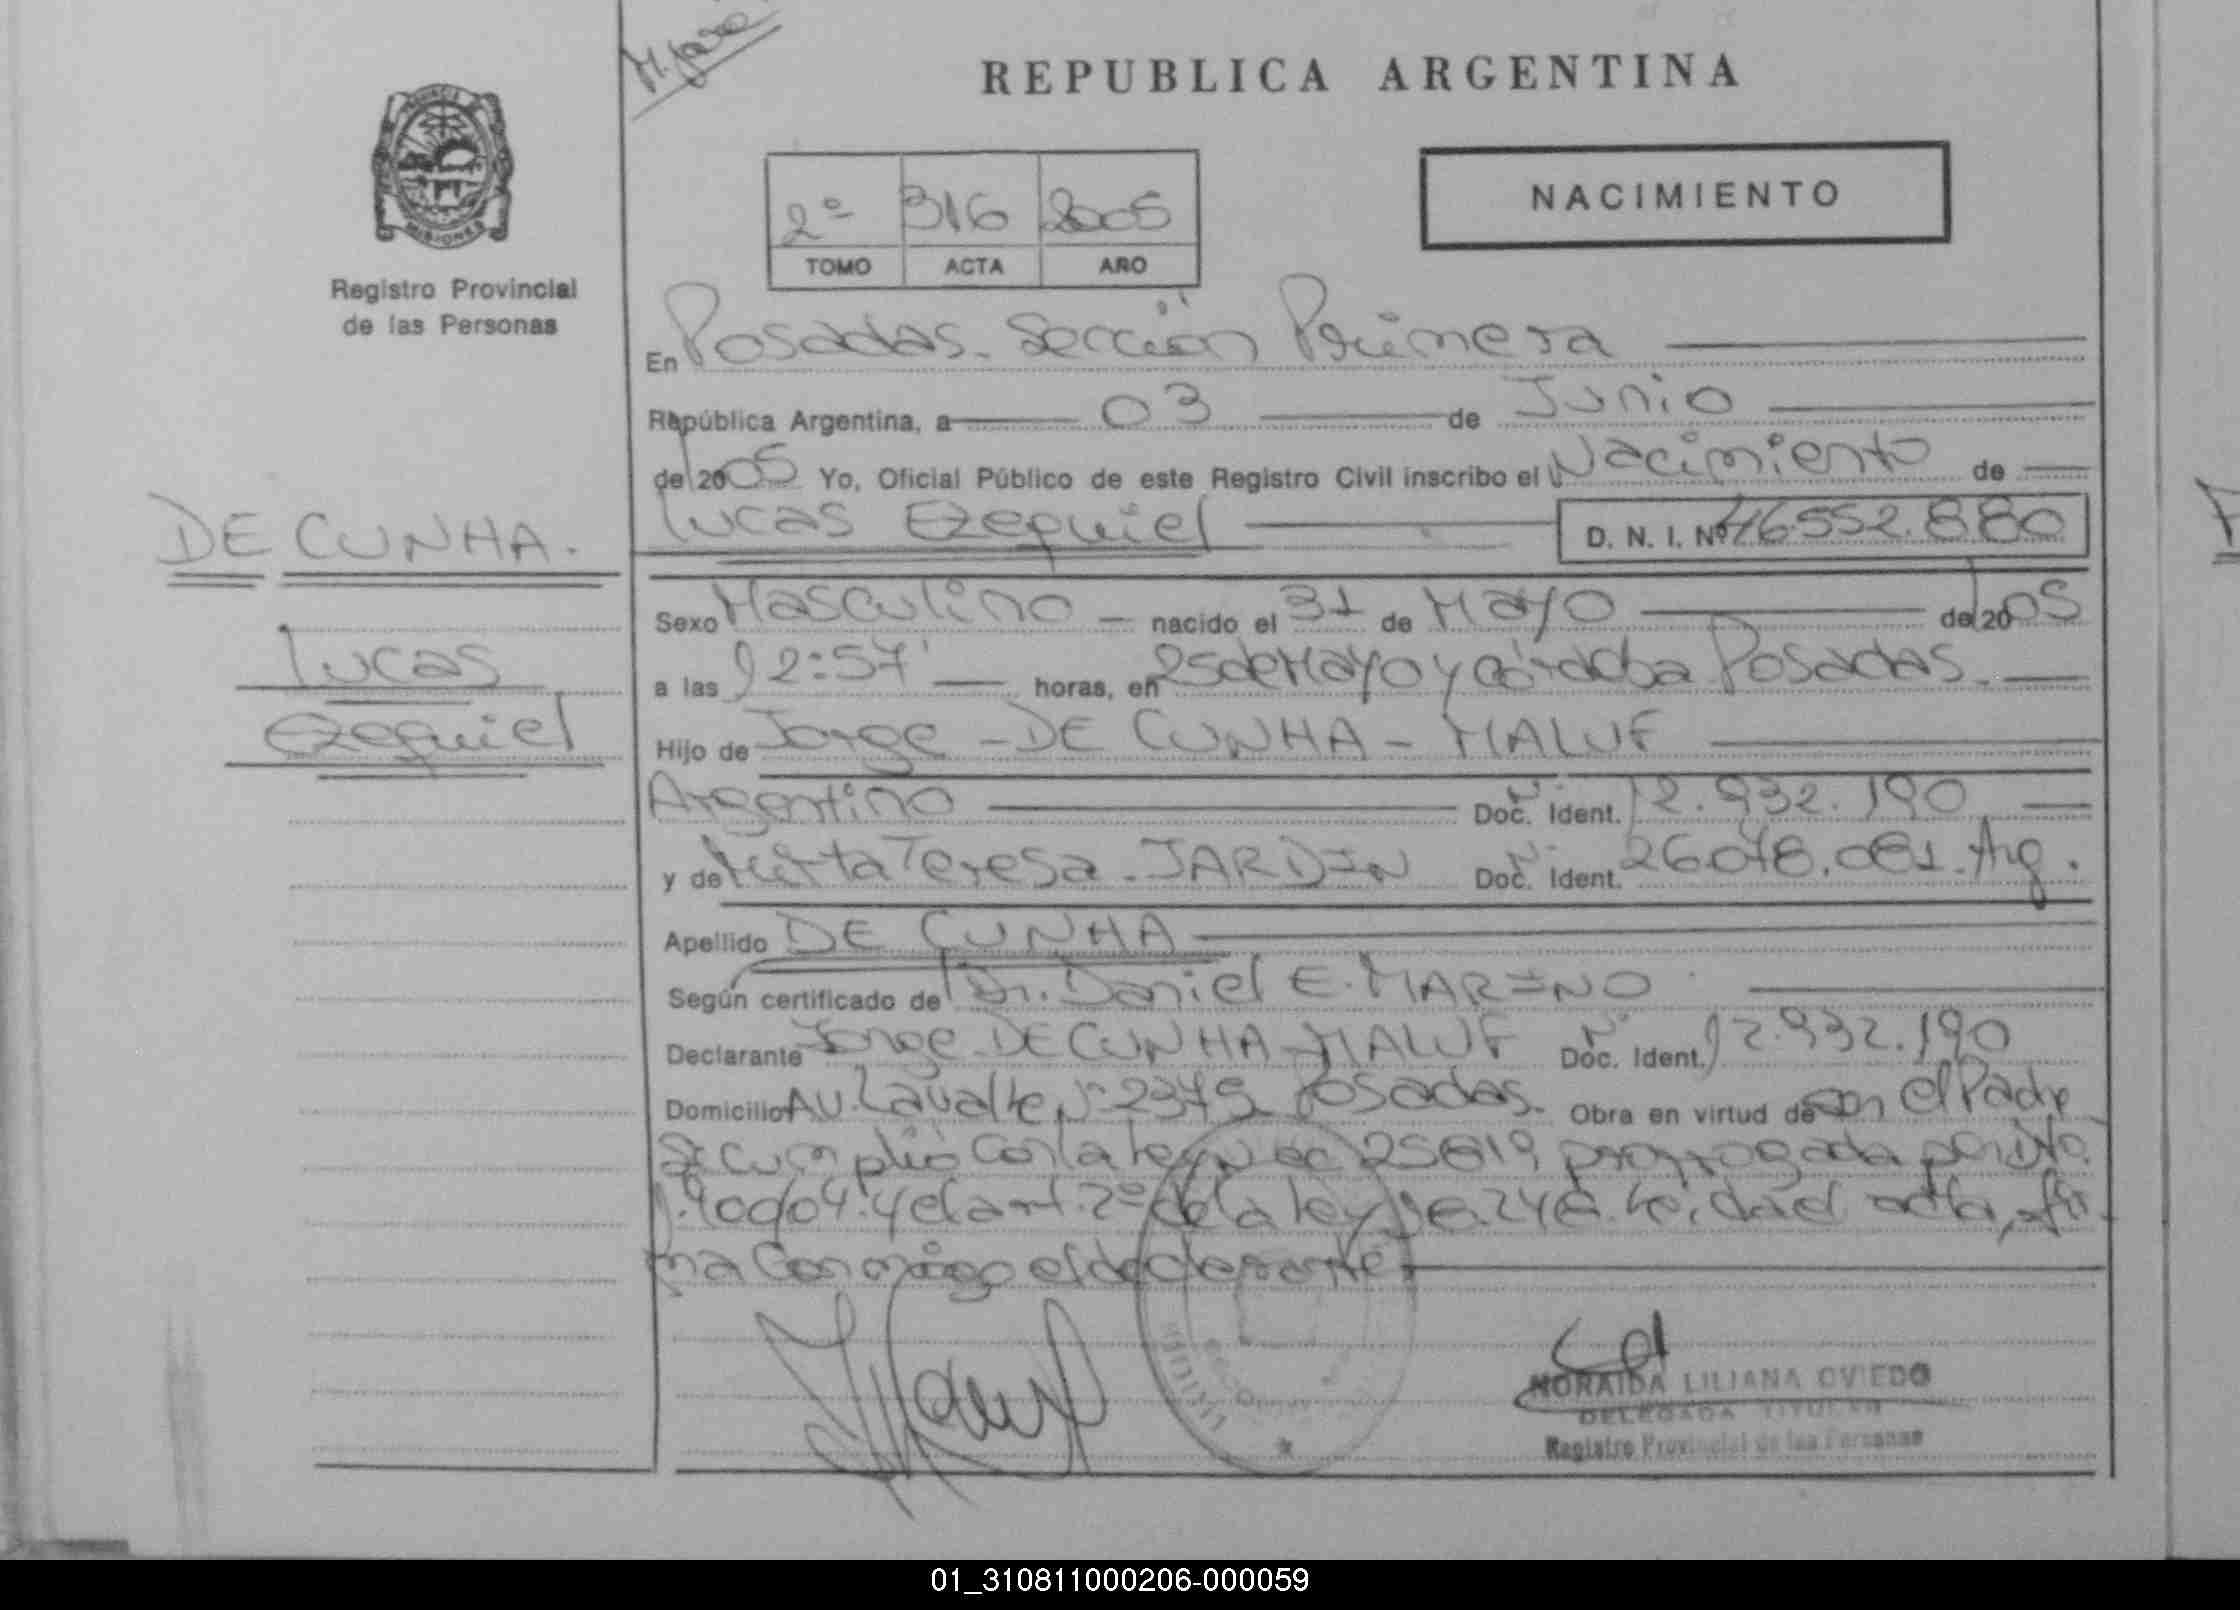 REPUBLICA ARGENTINA
NACIMIENTO
2º 316 2005
TOMO ACTA AÑO
PROVINCIA DE
MISIONES
Registro Provincial
de las Personas
En Posadas. Sección Primera
República Argentina, a 03 de Junio
de 2005 Yo, Oficial Público de este Registro Civil inscribo el Nacimiento de
Lucas Ezequiel D. N. I. Nº 46.552.880
DE CUNHA.
Lucas
Ezequiel
Sexo Masculino nacido el 31 de Mayo de 2005
a las 12:57' horas, en 25 de Mayo y Córdoba Posadas.
Hijo de Jorge - DE CUNHA - MALUF
Argentino Doc. Ident. 12.932.190
y de Mirta Teresa. JARDIN Doc. Ident. 26.048.081. Arg.
Apellido DE CUNHA
Según certificado de Dr. Daniel E. MARINO
Declarante Jorge DE CUNHA - MALUF Doc. Ident. 12.932.190
Domicilio AV. Lavalle Nº 2349 Posadas. Obra en virtud de ser el Padre
Se cumplió con la ley 25819 prorrogada por Dto.
y el art. 2º de la ley Leída el acta, fir-
ma conmigo el declarante
NORAIDA LILIANA OVIEDO
DELEGADA TITULAR
Registro Provincial de las Personas
01_310811000206-000059